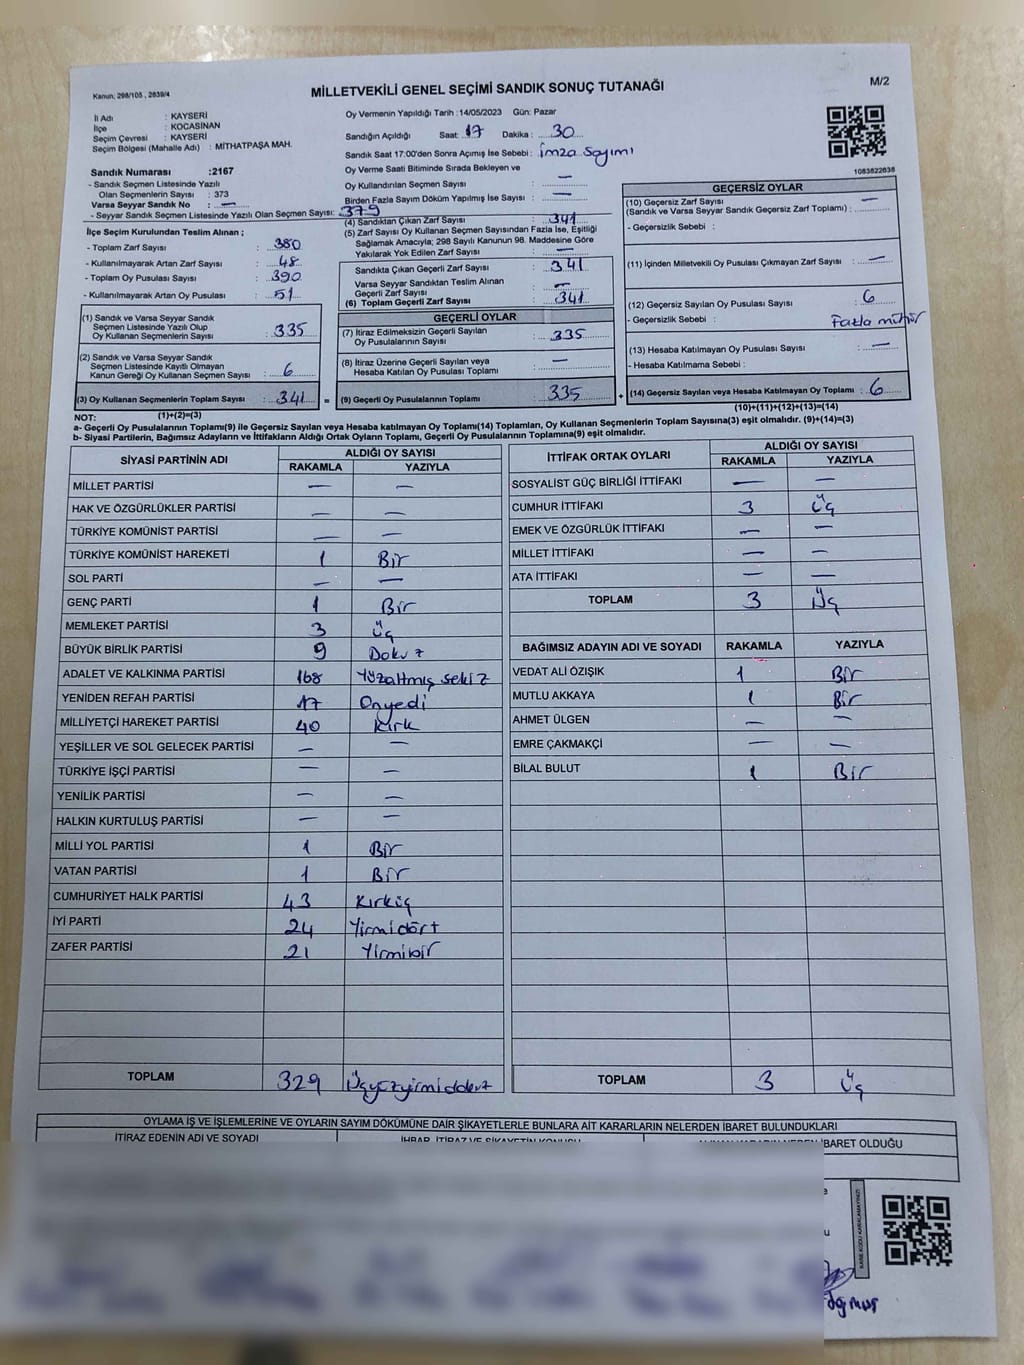 Kanun; 298/105 , 2839/4
MİLLETVEKİLİ GENEL SEÇİMİ SANDIK SONUÇ TUTANAĞI
M/2
İl Adı : KAYSERİ
İlçe : KOCASİNAN
Seçim Çevresi : KAYSERİ
Seçim Bölgesi (Mahalle Adı) : MİTHATPAŞA MAH.
Sandık Numarası :2167
- Sandık Seçmen Listesinde Yazılı
Olan Seçmenlerin Sayısı : 373
Varsa Seyyar Sandık No : —
- Seyyar Sandık Seçmen Listesinde Yazılı Olan Seçmen Sayısı: 379
İlçe Seçim Kurulundan Teslim Alınan ;
- Toplam Zarf Sayısı : 380
- Kullanılmayarak Artan Zarf Sayısı : 48
- Toplam Oy Pusulası Sayısı : 390
- Kullanılmayarak Artan Oy Pusulası : 51
(1) Sandık ve Varsa Seyyar Sandık
Seçmen Listesinde Yazılı Olup
Oy Kullanan Seçmenlerin Sayısı : 335
(2) Sandık ve Varsa Seyyar Sandık
Seçmen Listesinde Kayıtlı Olmayan
Kanun Gereği Oy Kullanan Seçmen Sayısı : 6
(3) Oy Kullanan Seçmenlerin Toplam Sayısı : 341 =
Oy Vermenin Yapıldığı Tarih :14/05/2023 Gün: Pazar
Sandığın Açıldığı Saat: 17 Dakika : 30
Sandık Saat 17:00'den Sonra Açımış İse Sebebi : İmza Sayımı
Oy Verme Saati Bitiminde Sırada Bekleyen ve
Oy Kullandırılan Seçmen Sayısı : —
Birden Fazla Sayım Döküm Yapılmış İse Sayısı : —
(4) Sandıktan Çıkan Zarf Sayısı : 341
(5) Zarf Sayısı Oy Kullanan Seçmen Sayısından Fazla İse, Eşitliği
Sağlamak Amacıyla; 298 Sayılı Kanunun 98. Maddesine Göre
Yakılarak Yok Edilen Zarf Sayısı : —
Sandıkta Çıkan Geçerli Zarf Sayısı : 341
Varsa Seyyar Sandıktan Teslim Alınan
Geçerli Zarf Sayısı : —
(6) Toplam Geçerli Zarf Sayısı : 341
GEÇERLİ OYLAR
(7) İtiraz Edilmeksizin Geçerli Sayılan
Oy Pusulalarının Sayısı : 335
(8) İtiraz Üzerine Geçerli Sayılan veya
Hesaba Katılan Oy Pusulası Toplamı : —
(9) Geçerli Oy Pusulalarının Toplamı : 335 +
1083822838
GEÇERSİZ OYLAR
(10) Geçersiz Zarf Sayısı
(Sandık ve Varsa Seyyar Sandık Geçersiz Zarf Toplamı) : —
- Geçersizlik Sebebi :
(11) İçinden Milletvekili Oy Pusulası Çıkmayan Zarf Sayısı : —
(12) Geçersiz Sayılan Oy Pusulası Sayısı : 6
- Geçersizlik Sebebi : Fazla mühür
(13) Hesaba Katılmayan Oy Pusulası Sayısı : —
- Hesaba Katılmama Sebebi :
(14) Geçersiz Sayılan veya Hesaba Katılmayan Oy Toplamı : 6
NOT: (1)+(2)=(3)
(10)+(11)+(12)+(13)=(14)
a- Geçerli Oy Pusulalarının Toplamı(9) ile Geçersiz Sayılan veya Hesaba katılmayan Oy Toplamı(14) Toplamları, Oy Kullanan Seçmenlerin Toplam Sayısına(3) eşit olmalıdır. (9)+(14)=(3)
b- Siyasi Partilerin, Bağımsız Adayların ve İttifakların Aldığı Ortak Oyların Toplamı, Geçerli Oy Pusulalarının Toplamına(9) eşit olmalıdır.
SİYASİ PARTİNİN ADI ALDIĞI OY SAYISI
RAKAMLA YAZIYLA
MİLLET PARTİSİ — —
HAK VE ÖZGÜRLÜKLER PARTİSİ — —
TÜRKİYE KOMÜNİST PARTİSİ — —
TÜRKİYE KOMÜNİST HAREKETİ 1 Bir
SOL PARTİ — —
GENÇ PARTİ 1 Bir
MEMLEKET PARTİSİ 3 Üç
BÜYÜK BİRLİK PARTİSİ 9 Dokuz
ADALET VE KALKINMA PARTİSİ 168 Yüzaltmış sekiz
YENİDEN REFAH PARTİSİ 17 Onyedi
MİLLİYETÇİ HAREKET PARTİSİ 40 Kırk
YEŞİLLER VE SOL GELECEK PARTİSİ — —
TÜRKİYE İŞÇİ PARTİSİ — —
YENİLİK PARTİSİ — —
HALKIN KURTULUŞ PARTİSİ — —
MİLLİ YOL PARTİSİ 1 Bir
VATAN PARTİSİ 1 Bir
CUMHURİYET HALK PARTİSİ 43 Kırküç
İYİ PARTİ 24 Yirmidört
ZAFER PARTİSİ 21 Yirmibir
TOPLAM 329 Üçyüzyirmidokuz
İTTİFAK ORTAK OYLARI ALDIĞI OY SAYISI
RAKAMLA YAZIYLA
SOSYALİST GÜÇ BİRLİĞİ İTTİFAKI — —
CUMHUR İTTİFAKI 3 Üç
EMEK VE ÖZGÜRLÜK İTTİFAKI — —
MİLLET İTTİFAKI — —
ATA İTTİFAKI — —
TOPLAM 3 Üç
BAĞIMSIZ ADAYIN ADI VE SOYADI RAKAMLA YAZIYLA
VEDAT ALİ ÖZIŞIK 1 Bir
MUTLU AKKAYA 1 Bir
AHMET ÜLGEN — —
EMRE ÇAKMAKÇİ — —
BİLAL BULUT 1 Bir
TOPLAM 3 Üç
OYLAMA İŞ VE İŞLEMLERİNE VE OYLARIN SAYIM DÖKÜMÜNE DAİR ŞİKAYETLERLE BUNLARA AİT KARARLARIN NELERDEN İBARET BULUNDUKLARI
İTİRAZ EDENİN ADI VE SOYADI İHBAR, İTİRAZ VE ŞİKAYETİN KONUSU İBARET OLDUĞU
KARE KODU KARALAMAYINIZ!